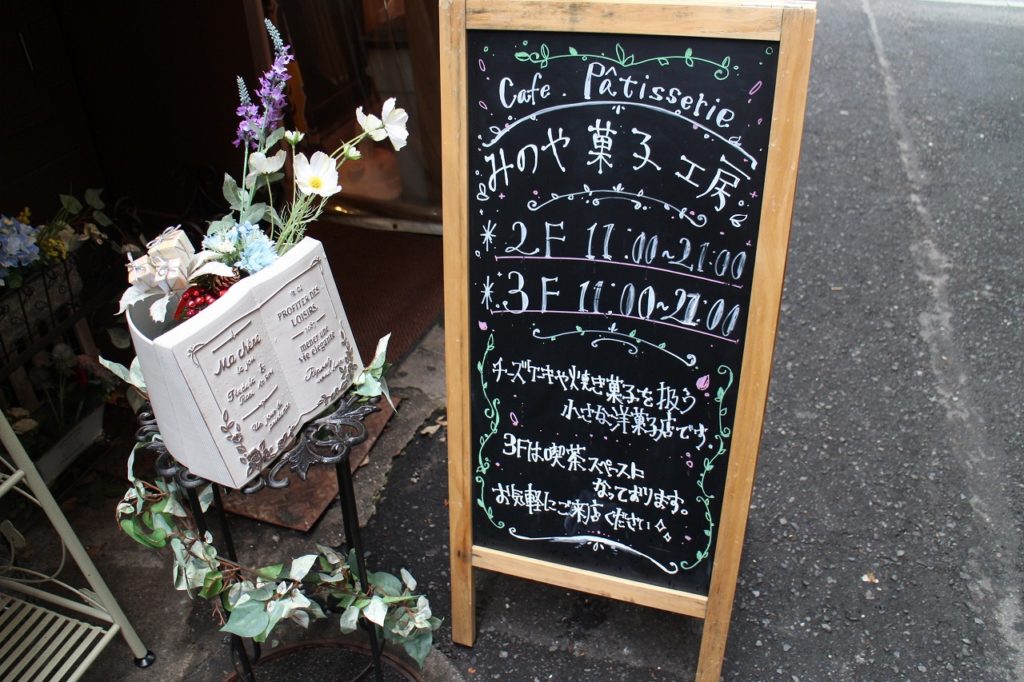 Cafe . Pâtisserie
みのや菓子工房
* 2F 11:00~21:00
* 3F 11:00~21:00
チーズケーキや焼き菓子を扱う
小さな洋菓子店です。
3Fは喫茶スペースに
なっております。
お気軽にご来店ください
Ma chère
PROFITER DES
LOISIRS
MENER UNE
VIE ÉLÉGANTE